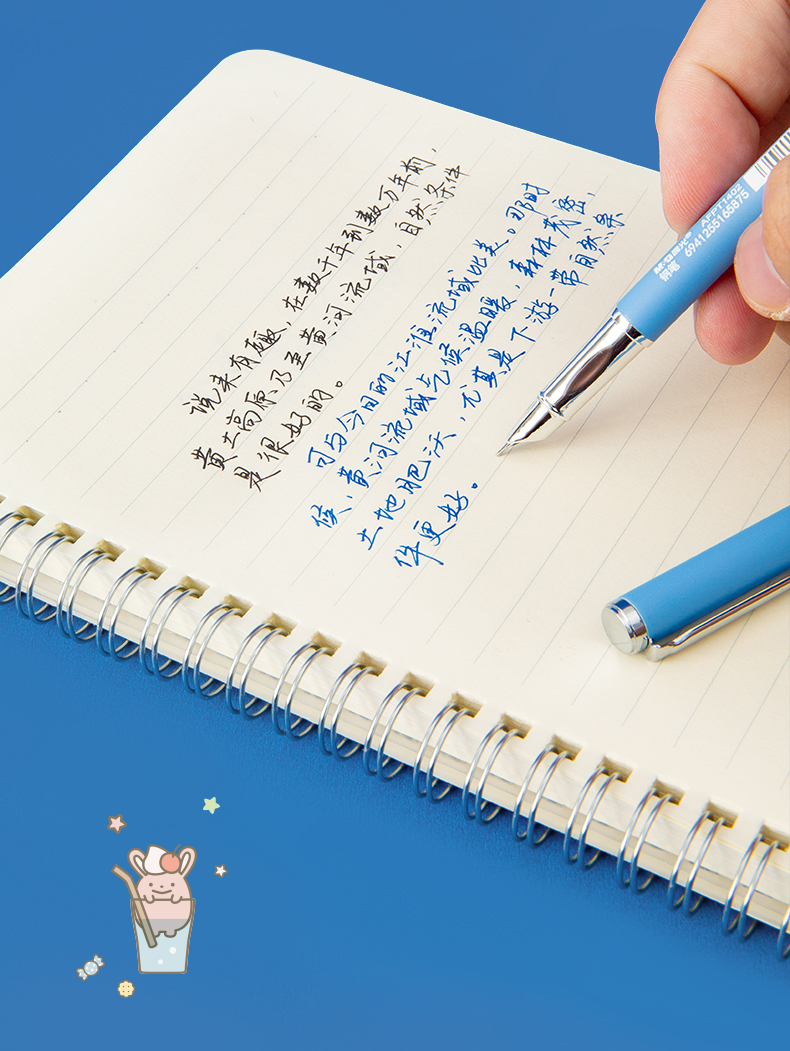 说来有趣，在数千年到数万年前，
黄土高原乃至黄河流域，自然条件
是很好的。
可与今日的江淮流域比美。那时
候，黄河流域气候温暖，森林茂密，
土地肥沃，尤其是下游一带自然条
件更好。
M&G晨光® AFPT1402
钢笔 6941255165875